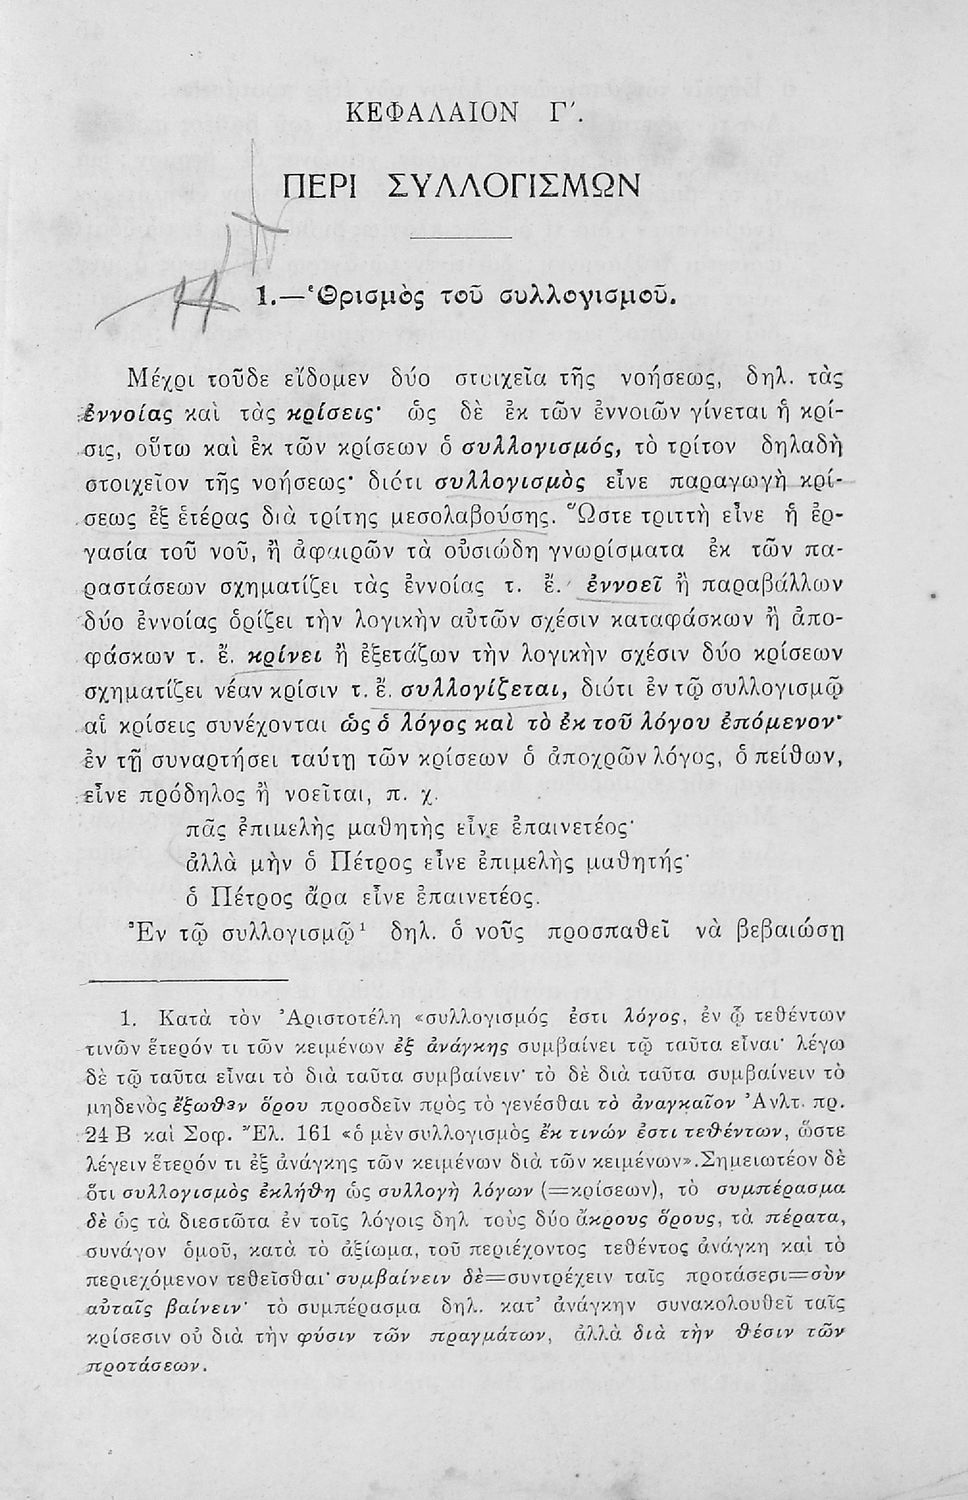 ΚΕΦΑΛΑΙΟΝ Γ΄.
ΠΕΡΙ ΣΥΛΛΟΓΙΣΜΩΝ
1.—Ὁρισμὸς τοῦ συλλογισμοῦ.
Μέχρι τοῦδε εἴδομεν δύο στοιχεῖα τῆς νοήσεως, δηλ. τὰς
ἐννοίας καὶ τὰς κρίσεις· ὡς δὲ ἐκ τῶν ἐννοιῶν γίνεται ἡ κρί-
σις, οὕτω καὶ ἐκ τῶν κρίσεων ὁ συλλογισμός, τὸ τρίτον δηλαδὴ
στοιχεῖον τῆς νοήσεως· διότι συλλογισμὸς εἶνε παραγωγὴ κρί-
σεως ἐξ ἑτέρας διὰ τρίτης μεσολαβούσης. Ὥστε τριττὴ εἶνε ἡ ἐρ-
γασία τοῦ νοῦ, ἢ ἀφαιρῶν τὰ οὐσιώδη γνωρίσματα ἐκ τῶν πα-
ραστάσεων σχηματίζει τὰς ἐννοίας τ. ἔ. ἐννοεῖ ἢ παραβάλλων
δύο ἐννοίας ὁρίζει τὴν λογικὴν αὐτῶν σχέσιν καταφάσκων ἢ ἀπο-
φάσκων τ. ἔ. κρίνει ἢ ἐξετάζων τὴν λογικὴν σχέσιν δύο κρίσεων
σχηματίζει νέαν κρίσιν τ. ἔ. συλλογίζεται, διότι ἐν τῷ συλλογισμῷ
αἱ κρίσεις συνέχονται ὡς ὁ λόγος καὶ τὸ ἐκ τοῦ λόγου ἑπόμενον·
ἐν τῇ συναρτήσει ταύτῃ τῶν κρίσεων ὁ ἀποχρῶν λόγος, ὁ πείθων,
εἶνε πρόδηλος ἢ νοεῖται, π. χ.
πᾶς ἐπιμελὴς μαθητὴς εἶνε ἐπαινετέος·
ἀλλὰ μὴν ὁ Πέτρος εἶνε ἐπιμελὴς μαθητής·
ὁ Πέτρος ἄρα εἶνε ἐπαινετέος.
Ἐν τῷ συλλογισμῷ¹ δηλ. ὁ νοῦς προσπαθεῖ νὰ βεβαιώσῃ
1. Κατὰ τὸν Ἀριστοτέλη «συλλογισμός ἐστι λόγος, ἐν ᾧ τεθέντων
τινῶν ἕτερόν τι τῶν κειμένων ἐξ ἀνάγκης συμβαίνει τῷ ταῦτα εἶναι· λέγω
δὲ τῷ ταῦτα εἶναι τὸ διὰ ταῦτα συμβαίνειν· τὸ δὲ διὰ ταῦτα συμβαίνειν τὸ
μηδενὸς ἔξωθεν ὅρου προσδεῖν πρὸς τὸ γενέσθαι τὸ ἀναγκαῖον Ἀνλτ. πρ.
24 Β καὶ Σοφ. Ἔλ. 161 «ὁ μὲν συλλογισμὸς ἔκ τινών ἐστι τεθέντων, ὥστε
λέγειν ἕτερόν τι ἐξ ἀνάγκης τῶν κειμένων διὰ τῶν κειμένων».Σημειωτέον δὲ
ὅτι συλλογισμὸς ἐκλήθη ὡς συλλογὴ λόγων (=κρίσεων), τὸ συμπέρασμα
δὲ ὡς τὰ διεστῶτα ἐν τοῖς λόγοις δηλ τοὺς δύο ἄκρους ὅρους, τὰ πέρατα,
συνάγον ὁμοῦ, κατὰ τὸ ἀξίωμα, τοῦ περιέχοντος τεθέντος ἀνάγκη καὶ τὸ
περιεχόμενον τεθεῖσθαι· συμβαίνειν δὲ=συντρέχειν ταῖς προτάσεσι=σὺν
αὐταῖς βαίνειν· τὸ συμπέρασμα δηλ. κατ' ἀνάγκην συνακολουθεῖ ταῖς
κρίσεσιν οὐ διὰ τὴν φύσιν τῶν πραγμάτων, ἀλλὰ διὰ τὴν θέσιν τῶν
προτάσεων.